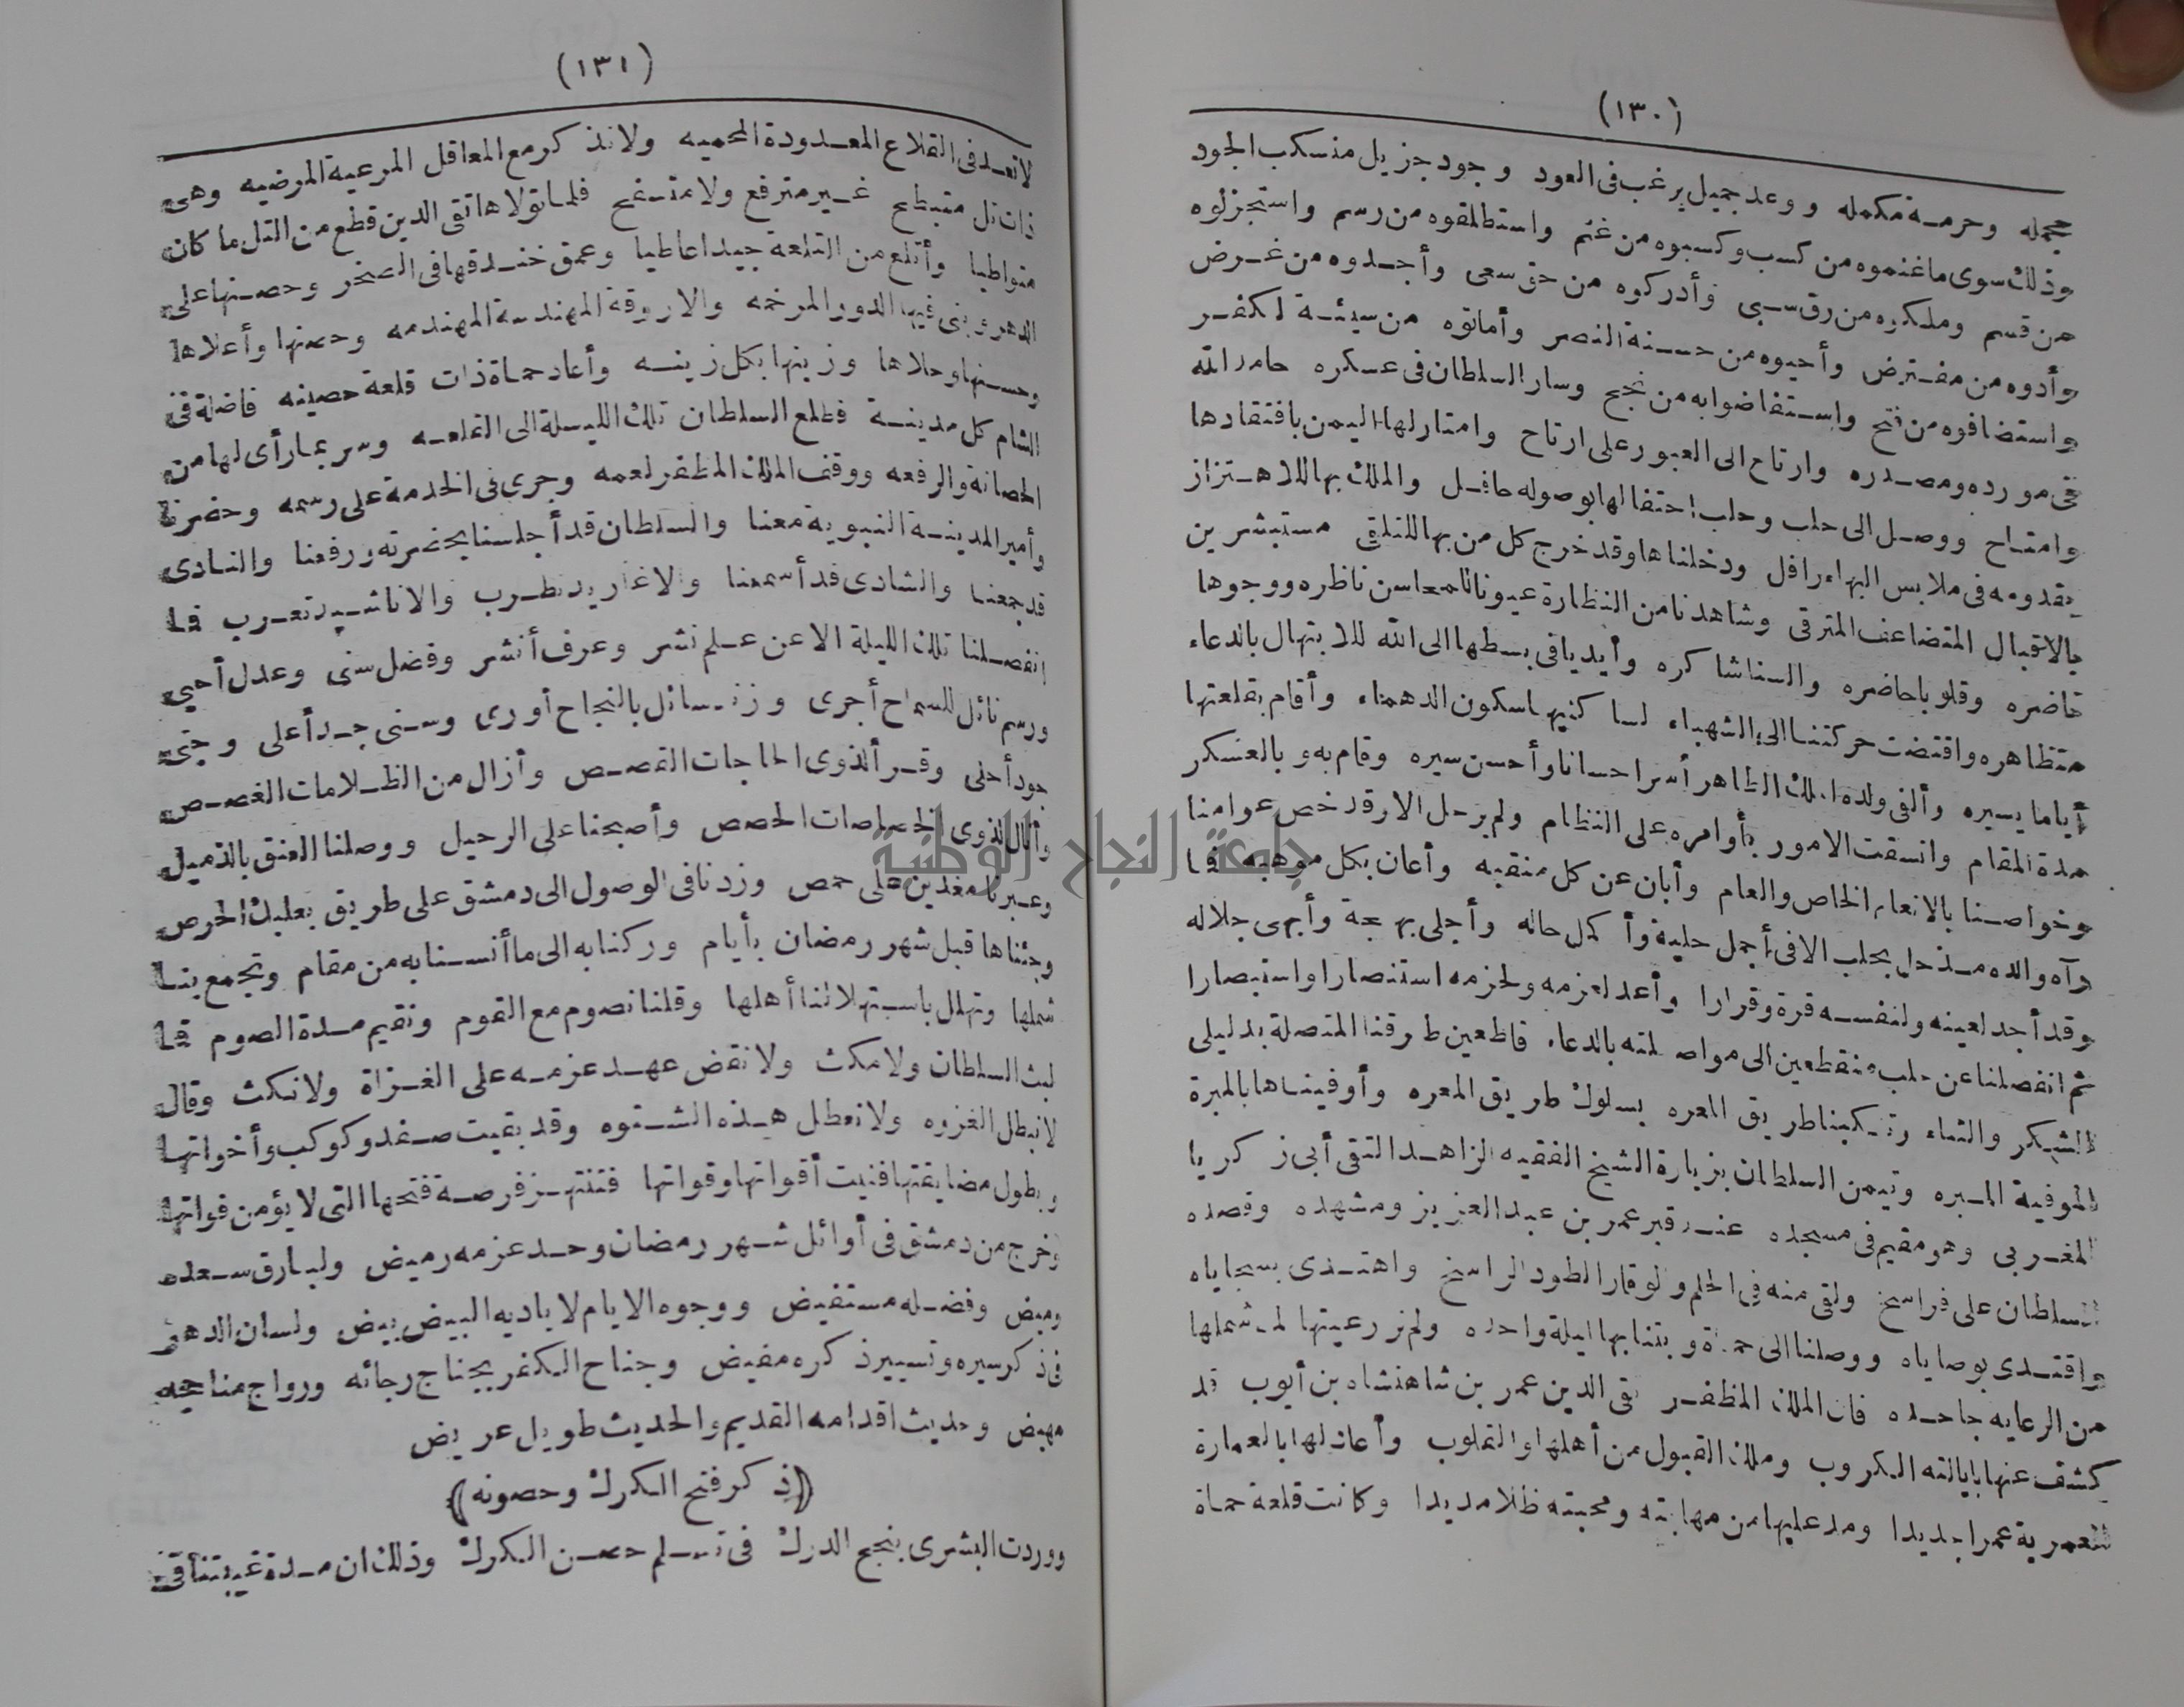 (١٣٠)
مجمله وحرمة مكمله ووعد جميل يرغب فى العود وجود جزيل منسكب الجود
وذلك سوى ما غنموه من كسب وكسبوه من غنم واستطلقوه من رسم واستجزلوه
من قسم وملكوه من رق سبى وأدركوه من حق سعى وأجدوه من غرض
وأدوه من مفترض وأحيوه من حسنة النصر وأماتوه من سيئة الكفر
واستضافوه من فتح واستفاضوا به من نجح وسار السلطان فى عسكره حامد الله
فى مورده ومصدره وارتاح الى العبور على ارتاح وامتار لها اليمن بافتقادها
وامتاح ووصل الى حلب وحلب احتفالها بوصوله حافل والملك بها للاهتزاز
بقدومه فى ملابس البهاء رافل ودخلناها وقد خرج كل من بها للتلقى مستبشرين
بالاقبال المتضاعف المترقى وشاهدنا من النظارة عيونا للمحاسن ناظره ووجوها
ناضره وقلوبا حاضره والسنا شاكره وأيديا فى بسطها الى الله للابتهال بالدعاء
متظاهره واقتضت حركتنا الى الشهباء لساكنيها سكون الدهماء وأقام بقلعتها
أياما يسيره وألفى ولده الملك الظاهر أسر احسانا وأحسن سيره وقام به وبالعسكر
مدة المقام واتسقت الامور بأوامره على النظام ولم يرحل الا وقد خص عوامنا
وخواصنا بالانعام الخاص والعام وأبان عن كل منقبه وأعان بكل موهبه فما
رآه والده مذ حل بحلب الا فى أجمل حلية وأكمل حاله وأجلى بهجة وأبهى جلاله
وقد أجد لعينه ولنفسه قرة وقرارا وأعد لعزمه ولحزمه استنصارا واستبصارا
ثم انفصلنا عن حلب منقطعين الى مواصلته بالدعاء قاطعين طرقنا المتصلة بدليلى
الشكر والثناء وتنكبنا طريق المعره بسلوك طريق المعره وأوفيناها بالمبرة
الموفية المبره وتيمن السلطان بزيارة الشيخ الفقيه الزاهد التقى أبى زكريا
المغربى وهو مقيم فى مسجده عند قبر عمر بن عبد العزيز ومشهده وقصده
السلطان على فراسخ ولقى منه فى الحلم والوقار الطود الراسخ واهتدى بسجاياه
واقتدى بوصاياه ووصلنا الى حماة وبتنا بها ليلة واحده ولم نر رعيتها لما شملها
من الرعايه جاحده فان الملك المظفر تقى الدين عمر بن شاهنشاه بن أيوب قد
كشف عنها بايالته الكروب وملك القبول من أهلها والقلوب وأعاد لها بالعمارة
العمرية عمرا جديدا ومد عليها من مهابته ومحبته ظلا مديدا وكانت قلعة حماة
(١٣١)
لا تعد فى القلاع المعدودة المحميه ولا تذكر مع المعاقل المرعية المرضيه وهى
ذات تل منبطح غير مترفع ولا متسفح فلما تولاها تقى الدين قطع من التل ما كان
متواطيا وأتلع من التلعة جيدا عاطيا وعمق خندقها فى الصخر وحصنها على
الدهر وبنى فيها الدور المرخمه والاروقة المهندسة المهندمه وحصنها وأعلاها
وحسنها وحلاها وزينها بكل زينه وأعاد حماة ذات قلعة حصينه فاضلة فى
الشام كل مدينة فطلع السلطان تلك الليلة الى القلعه وسر بما رأى لها من
الحصانة والرفعه ووقف الملك المظفر لعمه وجرى فى الخدمة على رسمه وحضرنا
وأمير المدينة النبوية معنا والسلطان قد أجلسنا بحضرته ورفعنا والنادى
قد جمعنا والشادى قد أسمعنا والاغاريد تطرب والاناشيد تعرب فما
انفصلنا تلك الليلة الا عن علم نشر وعرف أنشر وفضل سنى وعدل أحيى
ورسم نائل للسماح أجرى وزند سائل بالنجاح أورى وسنى جد أعلى وجنى
جود أحلى وقرأ لذوى الحاجات القصص وأزال من الظلامات الغصص
وأنال لذوى الخصاصات الحصص وأصبحنا على الرحيل ووصلنا العنق بالذميل
وعبرنا مغذين على حمص وزدنا فى الوصول الى دمشق على طريق بعلبك الحرص
وجئناها قبل شهر رمضان بأيام وركنا به الى ما أنسنا به من مقام وتجمع بنا
شملها وتهلل باستهلالنا أهلها وقلنا نصوم مع القوم ونقيم مدة الصوم فما
لبث السلطان ولا مكث ولا نقض عهد عزمه على الغزاة ولا نكث وقال
لا نبطل الغزوه ولا نعطل هذه الشتوه وقد بقيت صفد وكوكب وأخواتها
وبطول مضايقتها فنيت أقواتها وقواتها فننتهز فرصة فتحها التى لا يؤمن فواتها
وخرج من دمشق فى أوائل شهر رمضان وحد عزمه رميض ولبارق سعده
وميض وفضله مستفيض ووجوه الايام لاياديه البيض بيض ولسان الدهر
فى ذكر سيره وتسيير ذكره مفيض وجناح الكفر بجناح رجائه ورواج مناجحه
مهيض وحديث اقدامه القديم والحديث طويل عريض
(ذكر فتح الكرك وحصونه)
ووردت البشرى بنجح الدرك فى تسلم حصن الكرك وذلك ان مدة غيبتنا فى
جامعة النجاح الوطنية